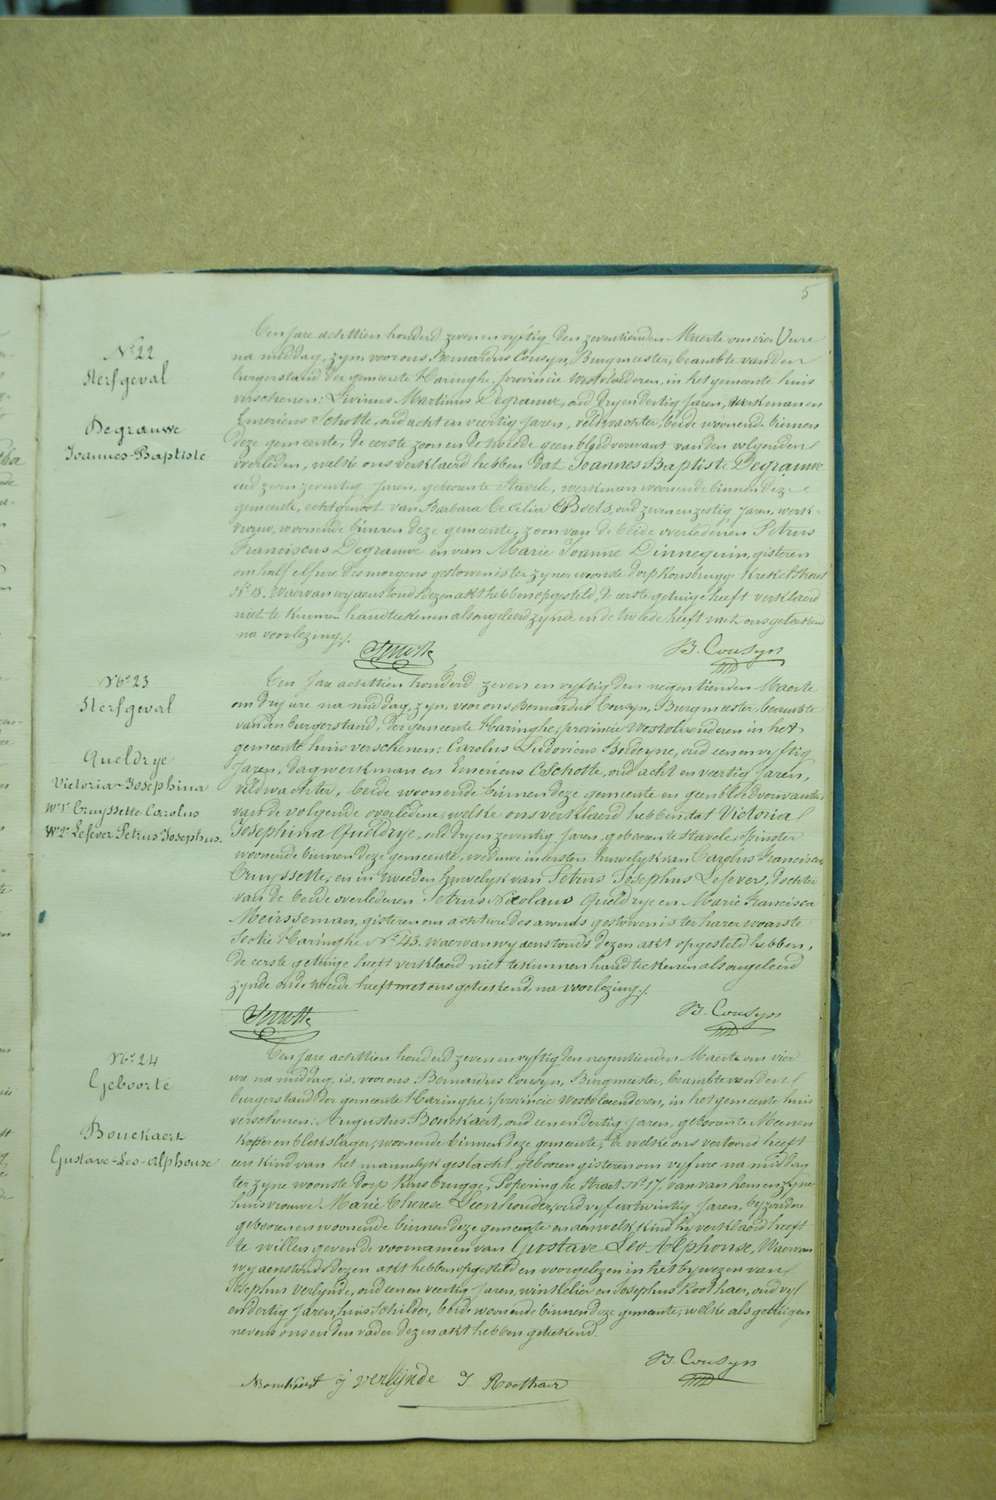 5
N° 22
Sterfgeval
Degrauwe
Joannes-Baptiste
Ten jare achttien honderd zeven en vyftig den zeventienden Maerte om vier Ure
na middag, zyn voor ons Bernardus Cousyn, Burgmeester, beambte van den
burgerstand der gemeente Haringhe, provincie Westvlaenderen, in het gemeente huis
verschenen: Livinus Martinus Degrauwe, oud dryendertig Jaren, werkman en
Emericus Schotte, oud acht en veertig Jaren, veldwachter, beide woonende binnen
deze gemeente, de eerste zoon en de tweede geen bloedverwant van den volgenden
overleden, welke ons verklaerd hebben dat Joannes Baptiste Degrauwe
oud zeven zeventig Jaren, geboren te Stavele, werkman woonende binnen deze
gemeente, echtgenoot van Barbara Cecilia Boels, oud zeven en zestig Jaren, werk-
vrouw, woonende binnen deze gemeente, zoon van de beide overledenen Petrus
Franciscus Degrauwe en van Marie Joanne Dinnequin, gisteren
om half elf ure des morgens gestorven is ter zyner woonste dorp Rousbrugge
N° 13. Waervan wy aenstonds dezen akt hebben opgesteld, de eerste getuige heeft verklaerd
niet te kunnen handteekenen als ongeleerd zynde en de tweede heeft met ons geteekend
na voorlezing./.
Schotte B. Cousyn
N° 23
Sterfgeval
Queldrye
Victoria-Josephina
We 1° Cruyssette Carolus
We 2° Lefever Petrus Josephus.
Ten Jare achttien honderd zeven en vyftig den negentienden Maerte
om dry ure na middag, zyn voor ons Bernardus Cousyn, Burgmeester, beambte
van den burgerstand, der gemeente Haringhe, provincie Westvlaenderen in het
gemeente huis verschenen: Carolus Ludovicus oud een en vyftig
Jaren, dagwerkman en Emericus Schotte, oud acht en veertig Jaren,
veldwachter, beide woonende binnen deze gemeente en geen bloedverwanten
van de volgende overledene, welke ons verklaerd hebben dat Victoria
Josephina Queldrye, oud dry en zeventig Jaren, geboren te Stavele, spinster
woonende binnen deze gemeente, weduwe in eersten huwelyk van Carolus Franciscus
Cruyssette, en in tweeden huwelyk van Petrus Josephus Lefever, dochter
van de beide overledenen Petrus Nicolaus Queldrye en Marie Francisca
Meirsseman, gisteren om acht ure des avonds gestorven is ter harer woonste
Sectie Haringhe N° 43. Waervan wy aenstonds dezen akt opgesteld hebben,
de eerste getuige heeft verklaerd niet te kunnen handteekenen als ongeleerd
zynde en de tweede heeft met ons geteekend na voorlezing./.
Schotte B. Cousyn
N° 24
Geboorte
Bouckaert
Gustave-Leo-Alphonse
Ten jare achttien honderd zeven en vyftig den negentienden Maerte om vier
ure na middag, is, voor ons Bernardus Cousyn, Burgmeester, beambte van den
burgerstand der gemeente Haringhe, provincie Westvlaenderen, in het gemeente huis
verschenen: Augustus Bouckaert, oud een en dertig Jaren, geboren te Meenen
koper en blekslager, woonende binnen deze gemeente, de welke ons vertoond heeft
een kind van het mannelyk geslacht, geboren gisteren om vyf ure na middag
ter zyne woonste dorp Rousbrugge, Poperinghe Straet N° 17, van van hem en zyne
huisvrouwe Marie Therese Leenknecht, oud vyf en twintig Jaren, byzondere
geboren en woonende binnen deze gemeente en aen welk kind hy verklaerd heeft
te willen geven de voornamen van Gustave Leo Alphonse, Waervan
wy aenstonds dezen akt hebben opgesteld en voorgelezen in het bywezen van
Josephus Verlynde, oud een en veertig Jaren, winkelier en Josephus Roothaer, oud vyf
en dertig Jaren, huisschilder, beide woonende binnen deze gemeente, welke als getuigen
nevens ons en den vader dezen akt hebben geteekend.
B. Cousyn
Bouckaert j verlynde J Roothaer